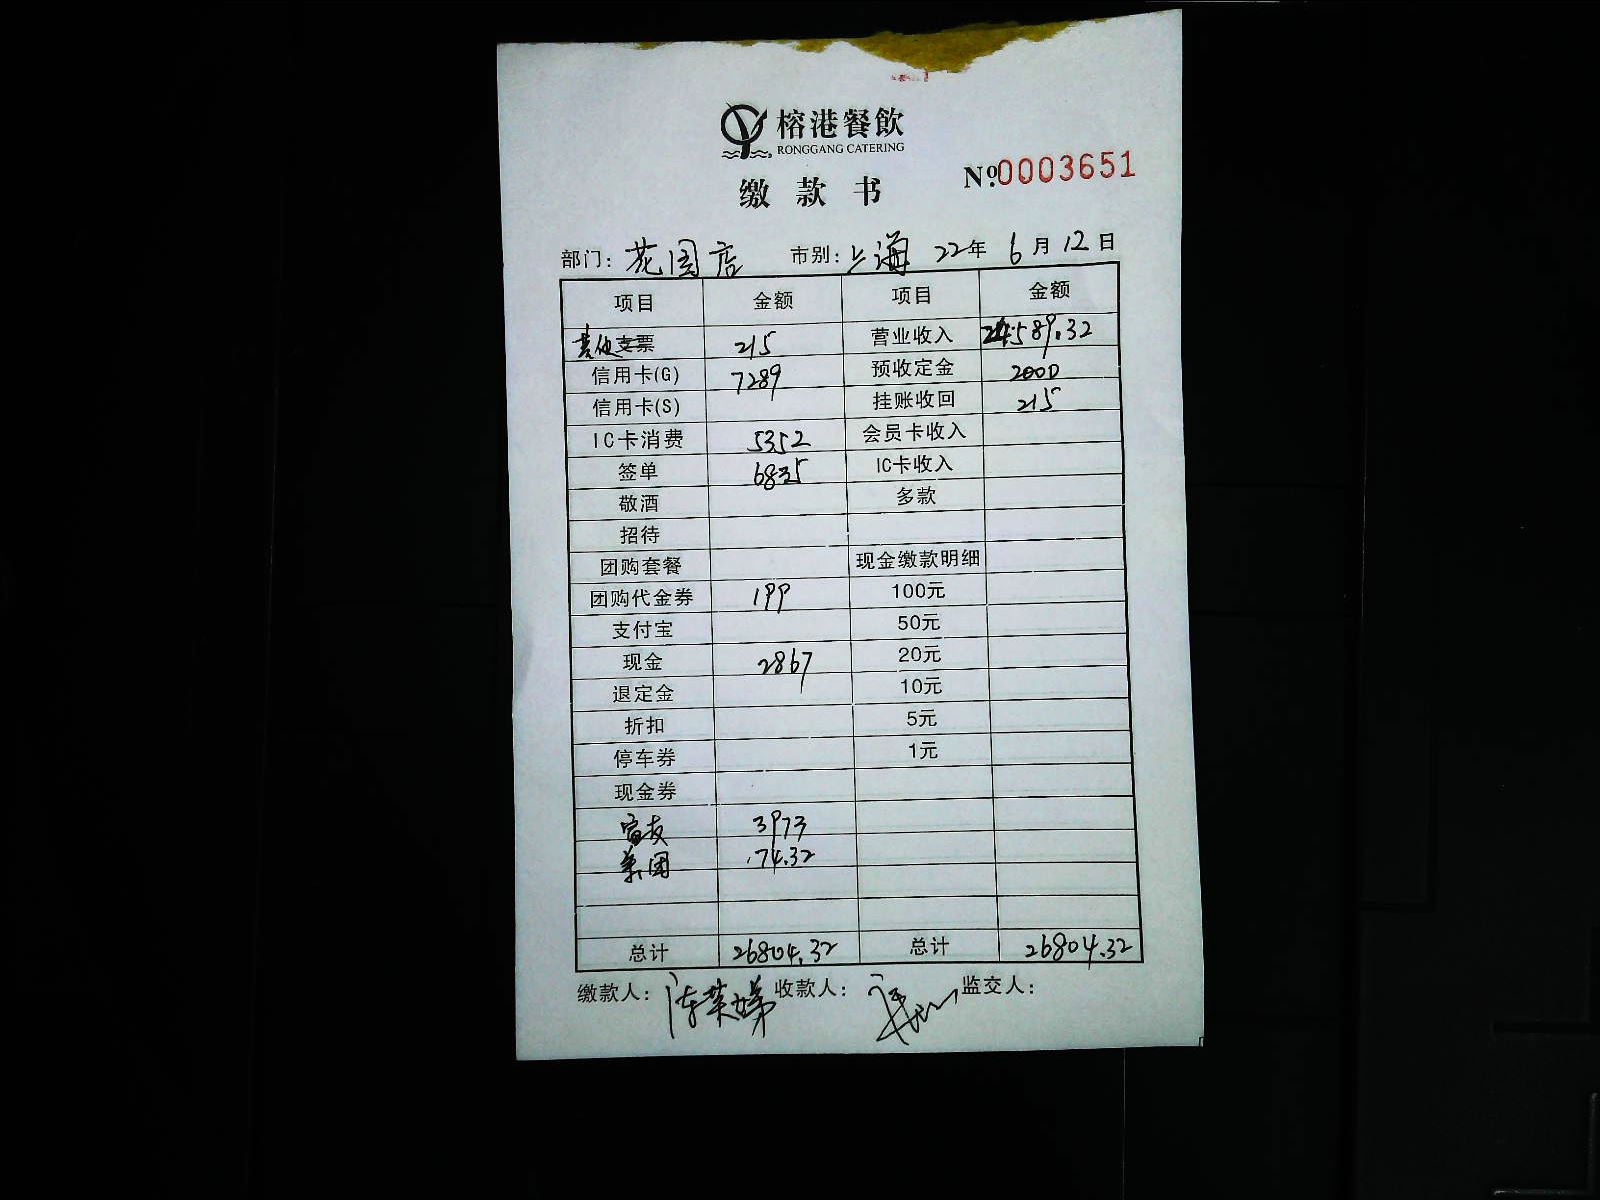 榕港餐飲
RONGGANG CATERING
缴款书
Nº.0003651
部门：花园店 市别：上海 22年 6月 12日
项目 金额 项目 金额
其他支票 215 营业收入 24589.32
信用卡(G) 7289 预收定金 2000
信用卡(S) 挂账收回 215
IC卡消费 5352 会员卡收入
签单 6835 IC卡收入
敬酒 多款
招待
团购套餐 现金缴款明细
团购代金券 199 100元
支付宝 50元
现金 2867 20元
退定金 10元
折扣 5元
停车券 1元
现金券
富友 3973
美团 74.32
总计 26804.32 总计 26804.32
缴款人： 收款人： 监交人：